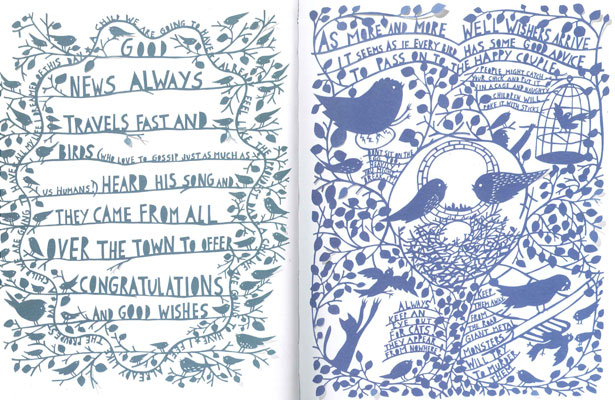 A CHILD WE ARE GOING TO HAVE A
GOOD
NEWS ALWAYS
TRAVELS FAST AND
BIRDS (WHO LOVE TO GOSSIP JUST AS MUCH AS
US HUMANS!) HEARD HIS SONG AND
THEY CAME FROM ALL
OVER THE TOWN TO OFFER
CONGRATULATIONS
AND GOOD WISHES
AS MORE AND MORE WELL WISHERS ARRIVE
IT SEEMS AS IF EVERY BIRD HAS SOME GOOD ADVICE
TO PASS ON TO THE HAPPY COUPLE
PEOPLE MIGHT CATCH
YOUR CHICK AND PUT IT
IN A CAGE AND NAUGHTY
CHILDREN WILL
POKE IT WITH STICKS
DON'T SIT ON THE
EGG TOO
HEAVILY
YOU MIGHT
BREAK IT
ALWAYS
KEEP AN
EYE OUT
FOR CATS
THEY APPEAR
FROM NOWHERE
KEEP
THEM AWAY
FROM
THE ROAD
GIANT METAL
MONSTERS
WILL TRY
TO MURDER
THEM